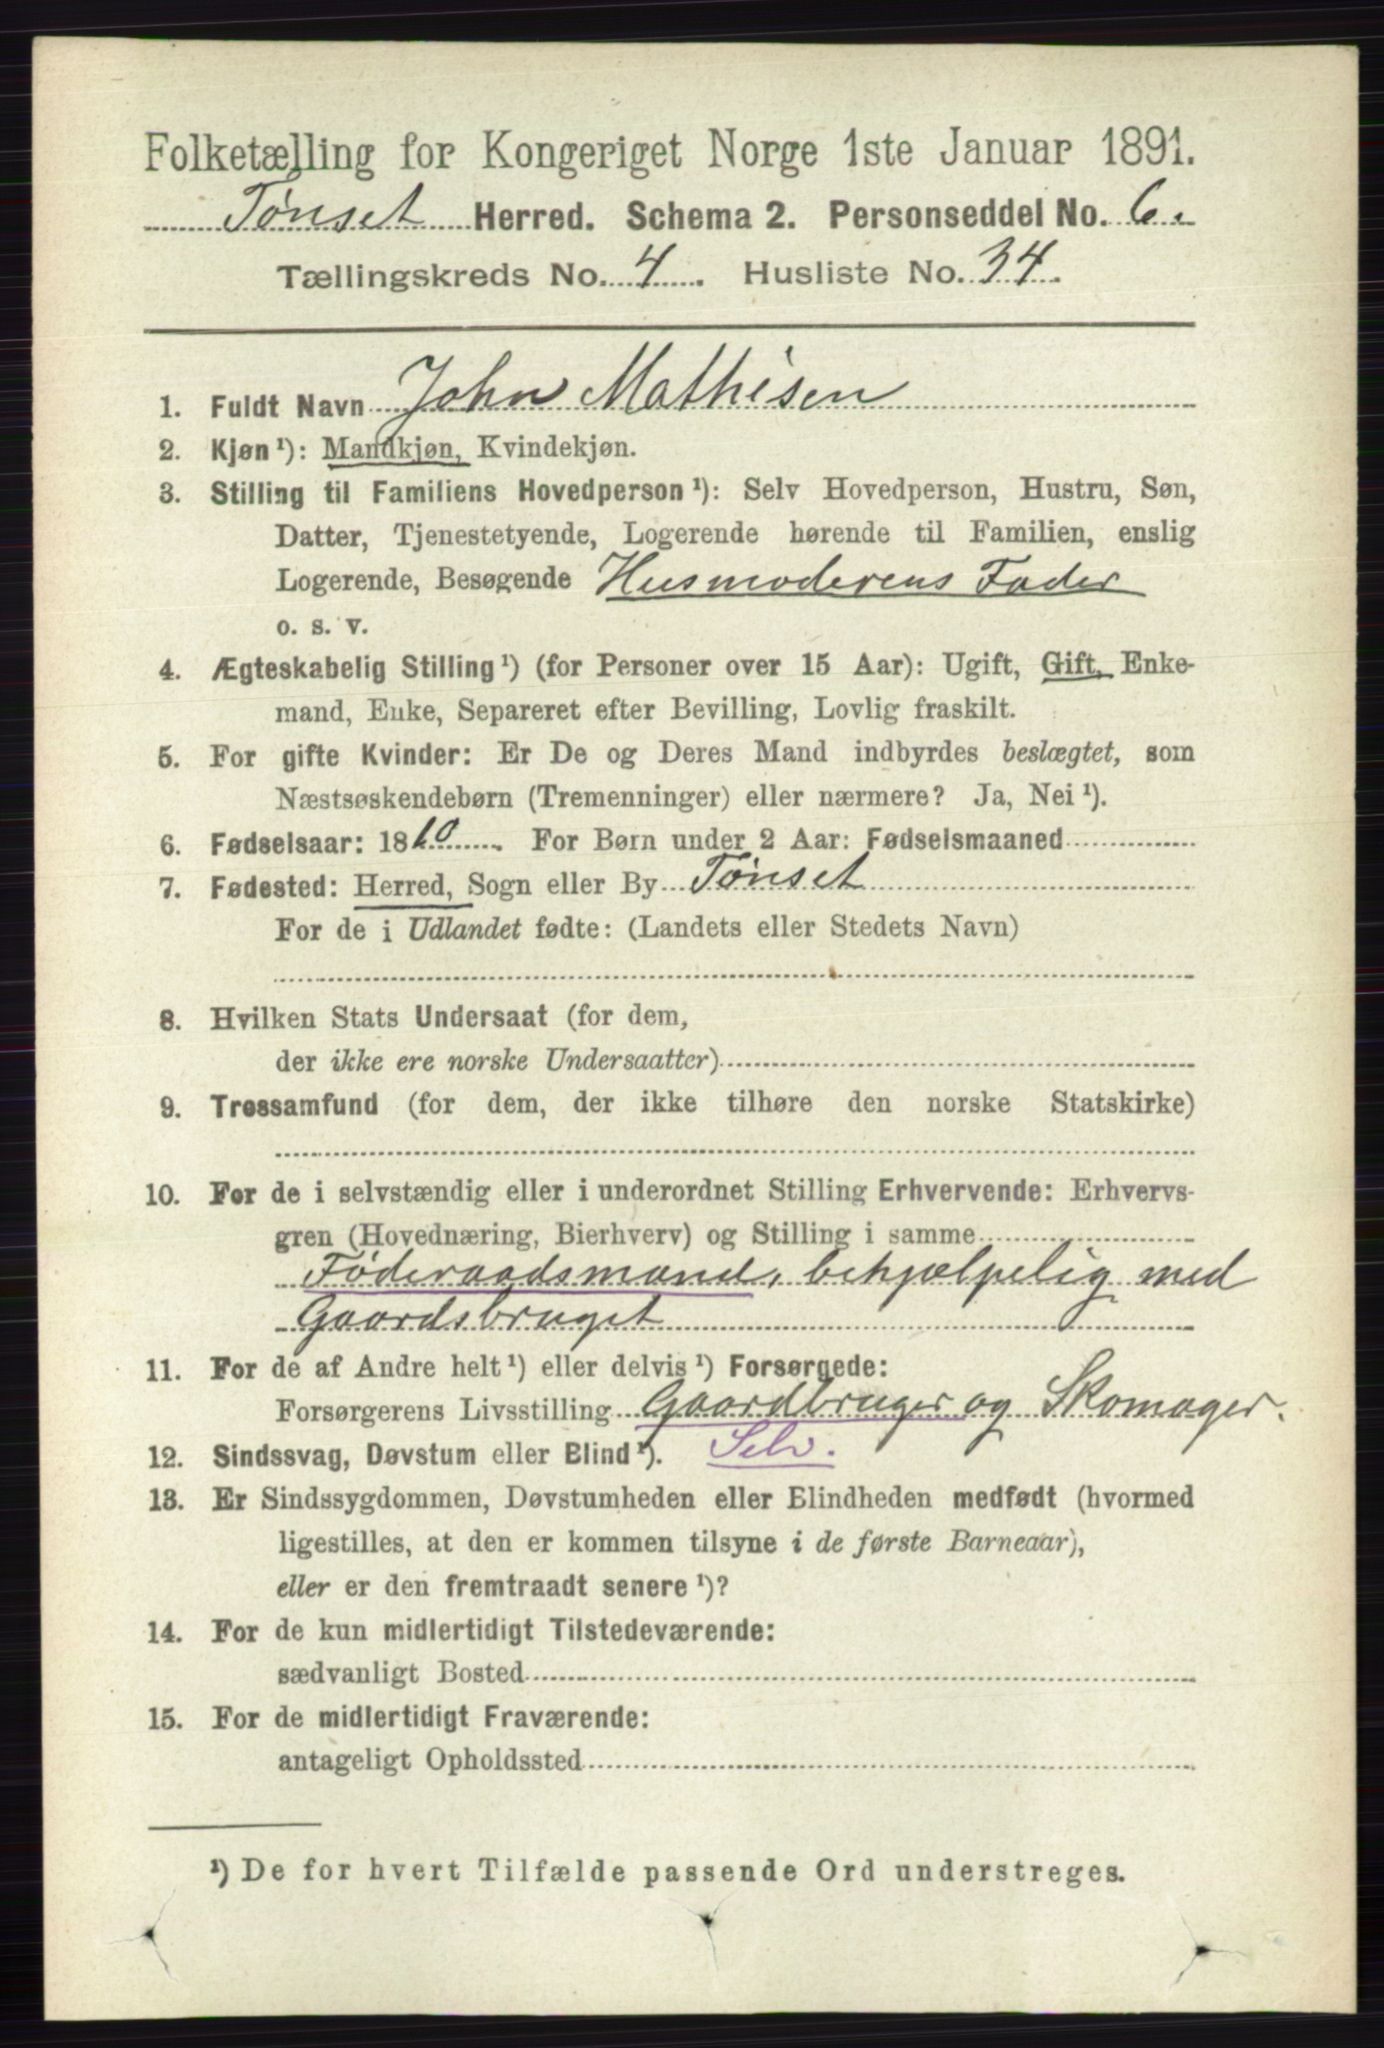 Folketælling for Kongeriget Norge 1ste Januar 1891.
Tønset Herred. Schema 2. Personseddel No. 6.
Tællingskreds No. 4. Husliste No. 34.
1. Fuldt Navn John Mathisen
2. Kjøn ¹): Mandkjøn, Kvindekjøn.
3. Stilling til Familiens Hovedperson ¹): Selv Hovedperson, Hustru, Søn,
Datter, Tjenestetyende, Logerende hørende til Familien, enslig
Logerende, Besøgende Husmoderens Fader
o. s. v.
4. Ægteskabelig Stilling ¹) (for Personer over 15 Aar): Ugift, Gift, Enke-
mand, Enke, Separeret efter Bevilling, Lovlig fraskilt.
5. For gifte Kvinder: Er De og Deres Mand indbyrdes beslægtet, som
Næstsøskendebørn (Tremenninger) eller nærmere? Ja, Nei ¹).
6. Fødselsaar: 18 For Børn under 2 Aar: Fødselsmaaned
7. Fødested: Herred, Sogn eller By Tønset
For de i Udlandet fødte: (Landets eller Stedets Navn)
8. Hvilken Stats Undersaat (for dem,
der ikke ere norske Undersaatter)
9. Trossamfund (for dem, der ikke tilhøre den norske Statskirke)
10. For de i selvstændig eller i underordnet Stilling Erhvervende: Erhvervs-
gren (Hovednæring, Bierhverv) og Stilling i samme
Føderaadsmand, behjælpelig med
Gaardsbruget
11. For de af Andre helt ¹) eller delvis ¹) Forsørgede:
Forsørgerens Livsstilling Gaardbruger og Skomager.
12. Sindssvag, Døvstum eller Blind ¹). Selv.
13. Er Sindssygdommen, Døvstumheden eller Blindheden medfødt (hvormed
ligestilles, at den er kommen tilsyne i de første Barneaar),
eller er den fremtraadt senere ¹)?
14. For de kun midlertidigt Tilstedeværende:
sædvanligt Bosted
15. For de midlertidigt Fraværende:
antageligt Opholdssted
¹) De for hvert Tilfælde passende Ord understreges.